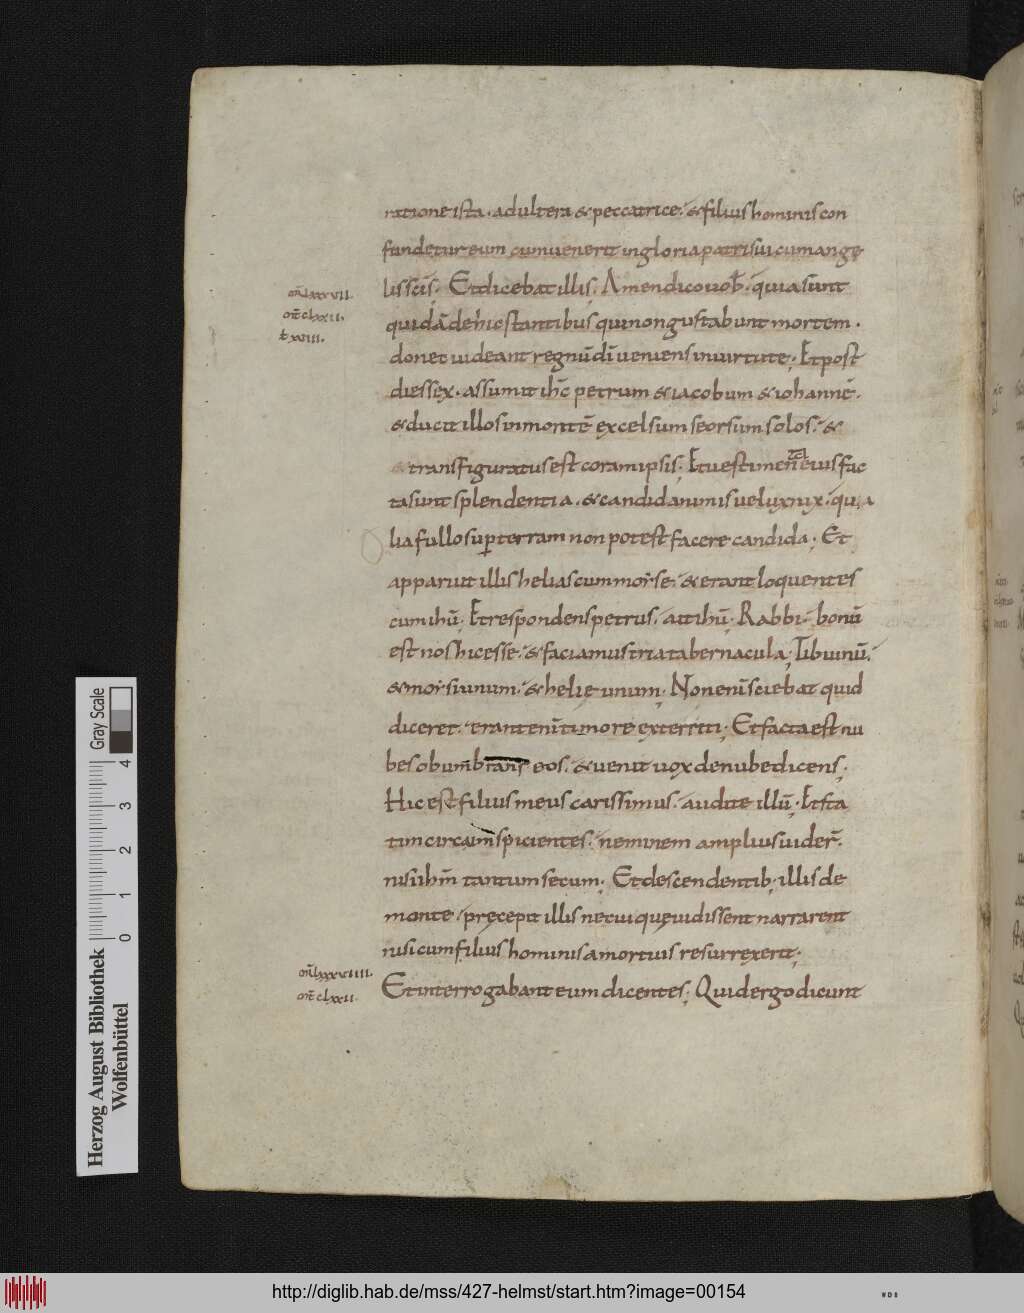 ratione ista · adultera & peccatrice · & filius hominis con
fundetur eum cum uenerit in gloria patris sui cum ange
lis sc̄is · Et dicebat illis ; Amen dico uob̄ · quia sunt
quidā de hic stantibus qui non gustabunt mortem ·
donec uideant regnū dī ueniens in uirtute ; Et post
dies sex · assumit ih̄c petrum & iacobum & iohannē ·
& ducit illos in montē excelsum seorsum solos · &
transfiguratus est coram ipsis ; Et uestimen̄ta eius fac
ta sunt splendentia · & candida nimis uelux nix · qua
lia fullo sup̄ terram non potest facere candida ; Et
apparuit illis helias cum moise · & erant loquentes
cum ihū ; Et respondens petrus · ait ihū ; Rabbi · bonū
est nos hic esse · & faciamus tria tabernacula ; Tibi unū ·
& moisi unum · & helie unum ; Non enī sciebat quid
diceret · erant enī timore exterriti ; Et facta est nu
bes obumbrans eos · & uenit uox de nube dicens ;
Hic est filius meus carissimus · audite illū ; Et sta
tim circumspicientes · neminem amplius uider̄ ·
nisi ihm̄ tantum secum ; Et descendentib; illis de
monte · precepit illis ne cui que uidissent narrarent
nisi cum filius hominis a mortuis resurrexerit ;
Et interrogabant eum dicentes ; Quid ergo dicunt
mr̄ lxxxvii.
mt̄ clxxii.
l xviiii.
mr̄ lxxxviiii.
mt̄ clxxii.
Gray Scale
0 1 2 3 4
Herzog August Bibliothek
Wolfenbüttel
http://diglib.hab.de/mss/427-helmst/start.htm?image=00154